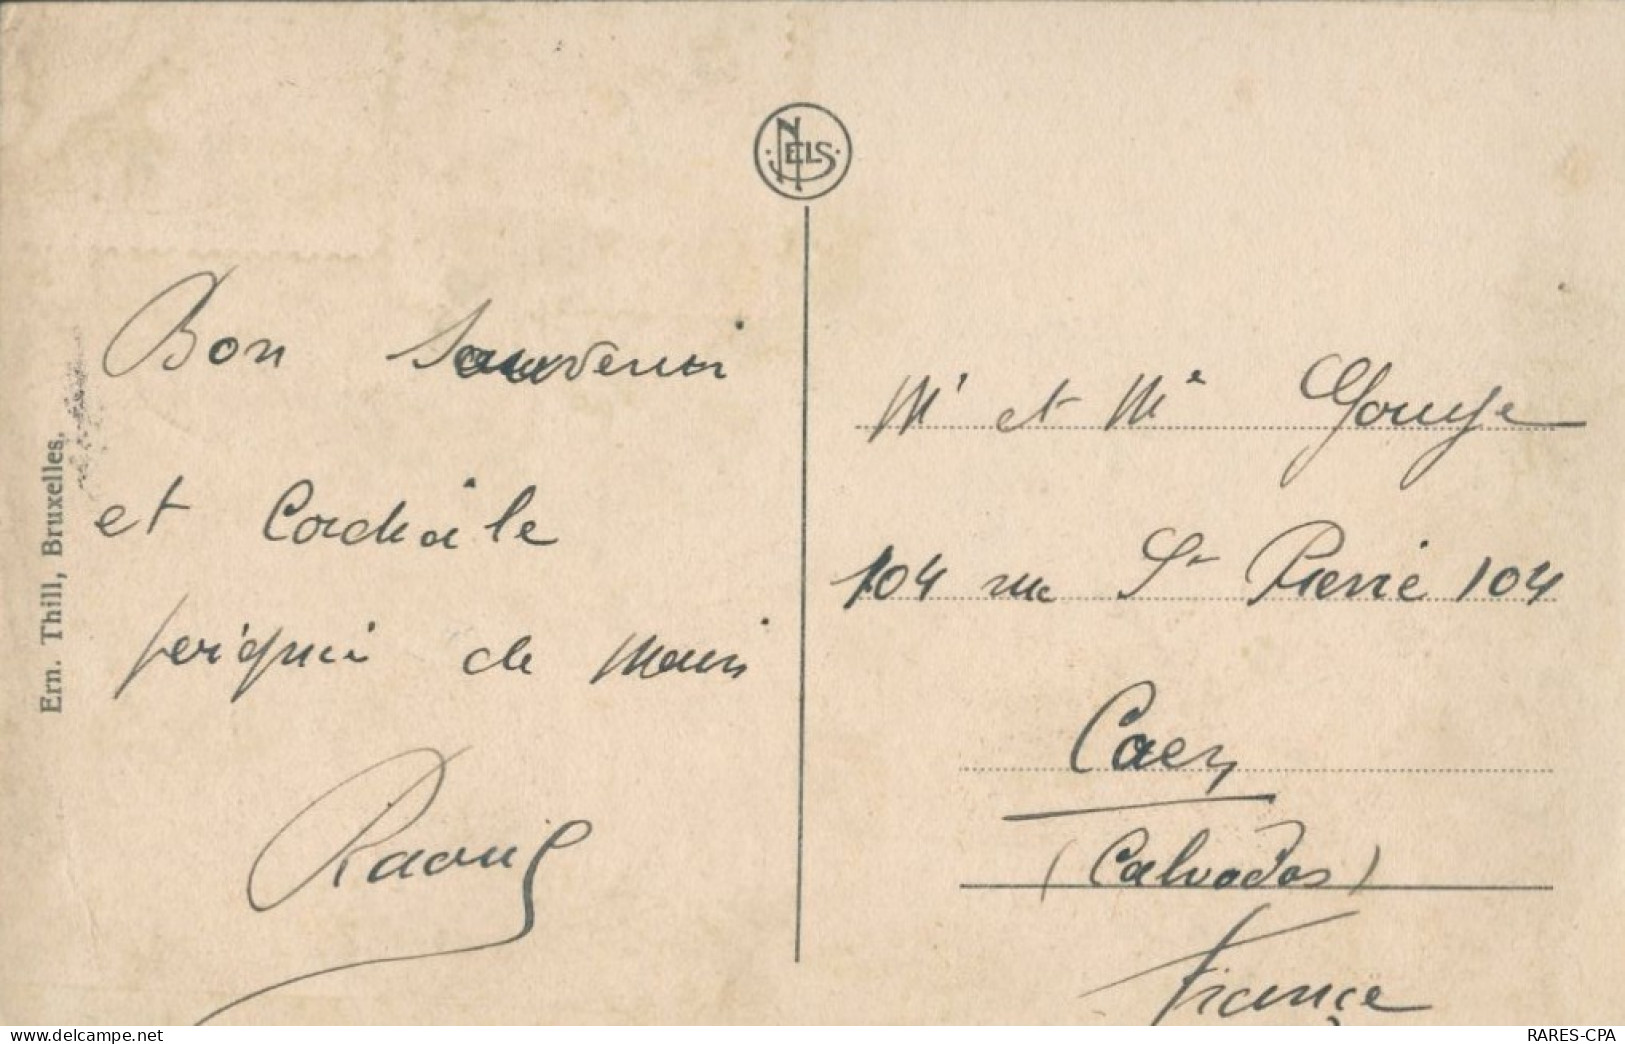 NELS
Ern. Thill, Bruxelles.
Bon Souvenir
et Cordiale
poignée de main
Raoul
Mr et Me Gouye
104 rue St Pierre 104
Caen
(Calvados)
France
www.delcampe.net
RARES-CPA